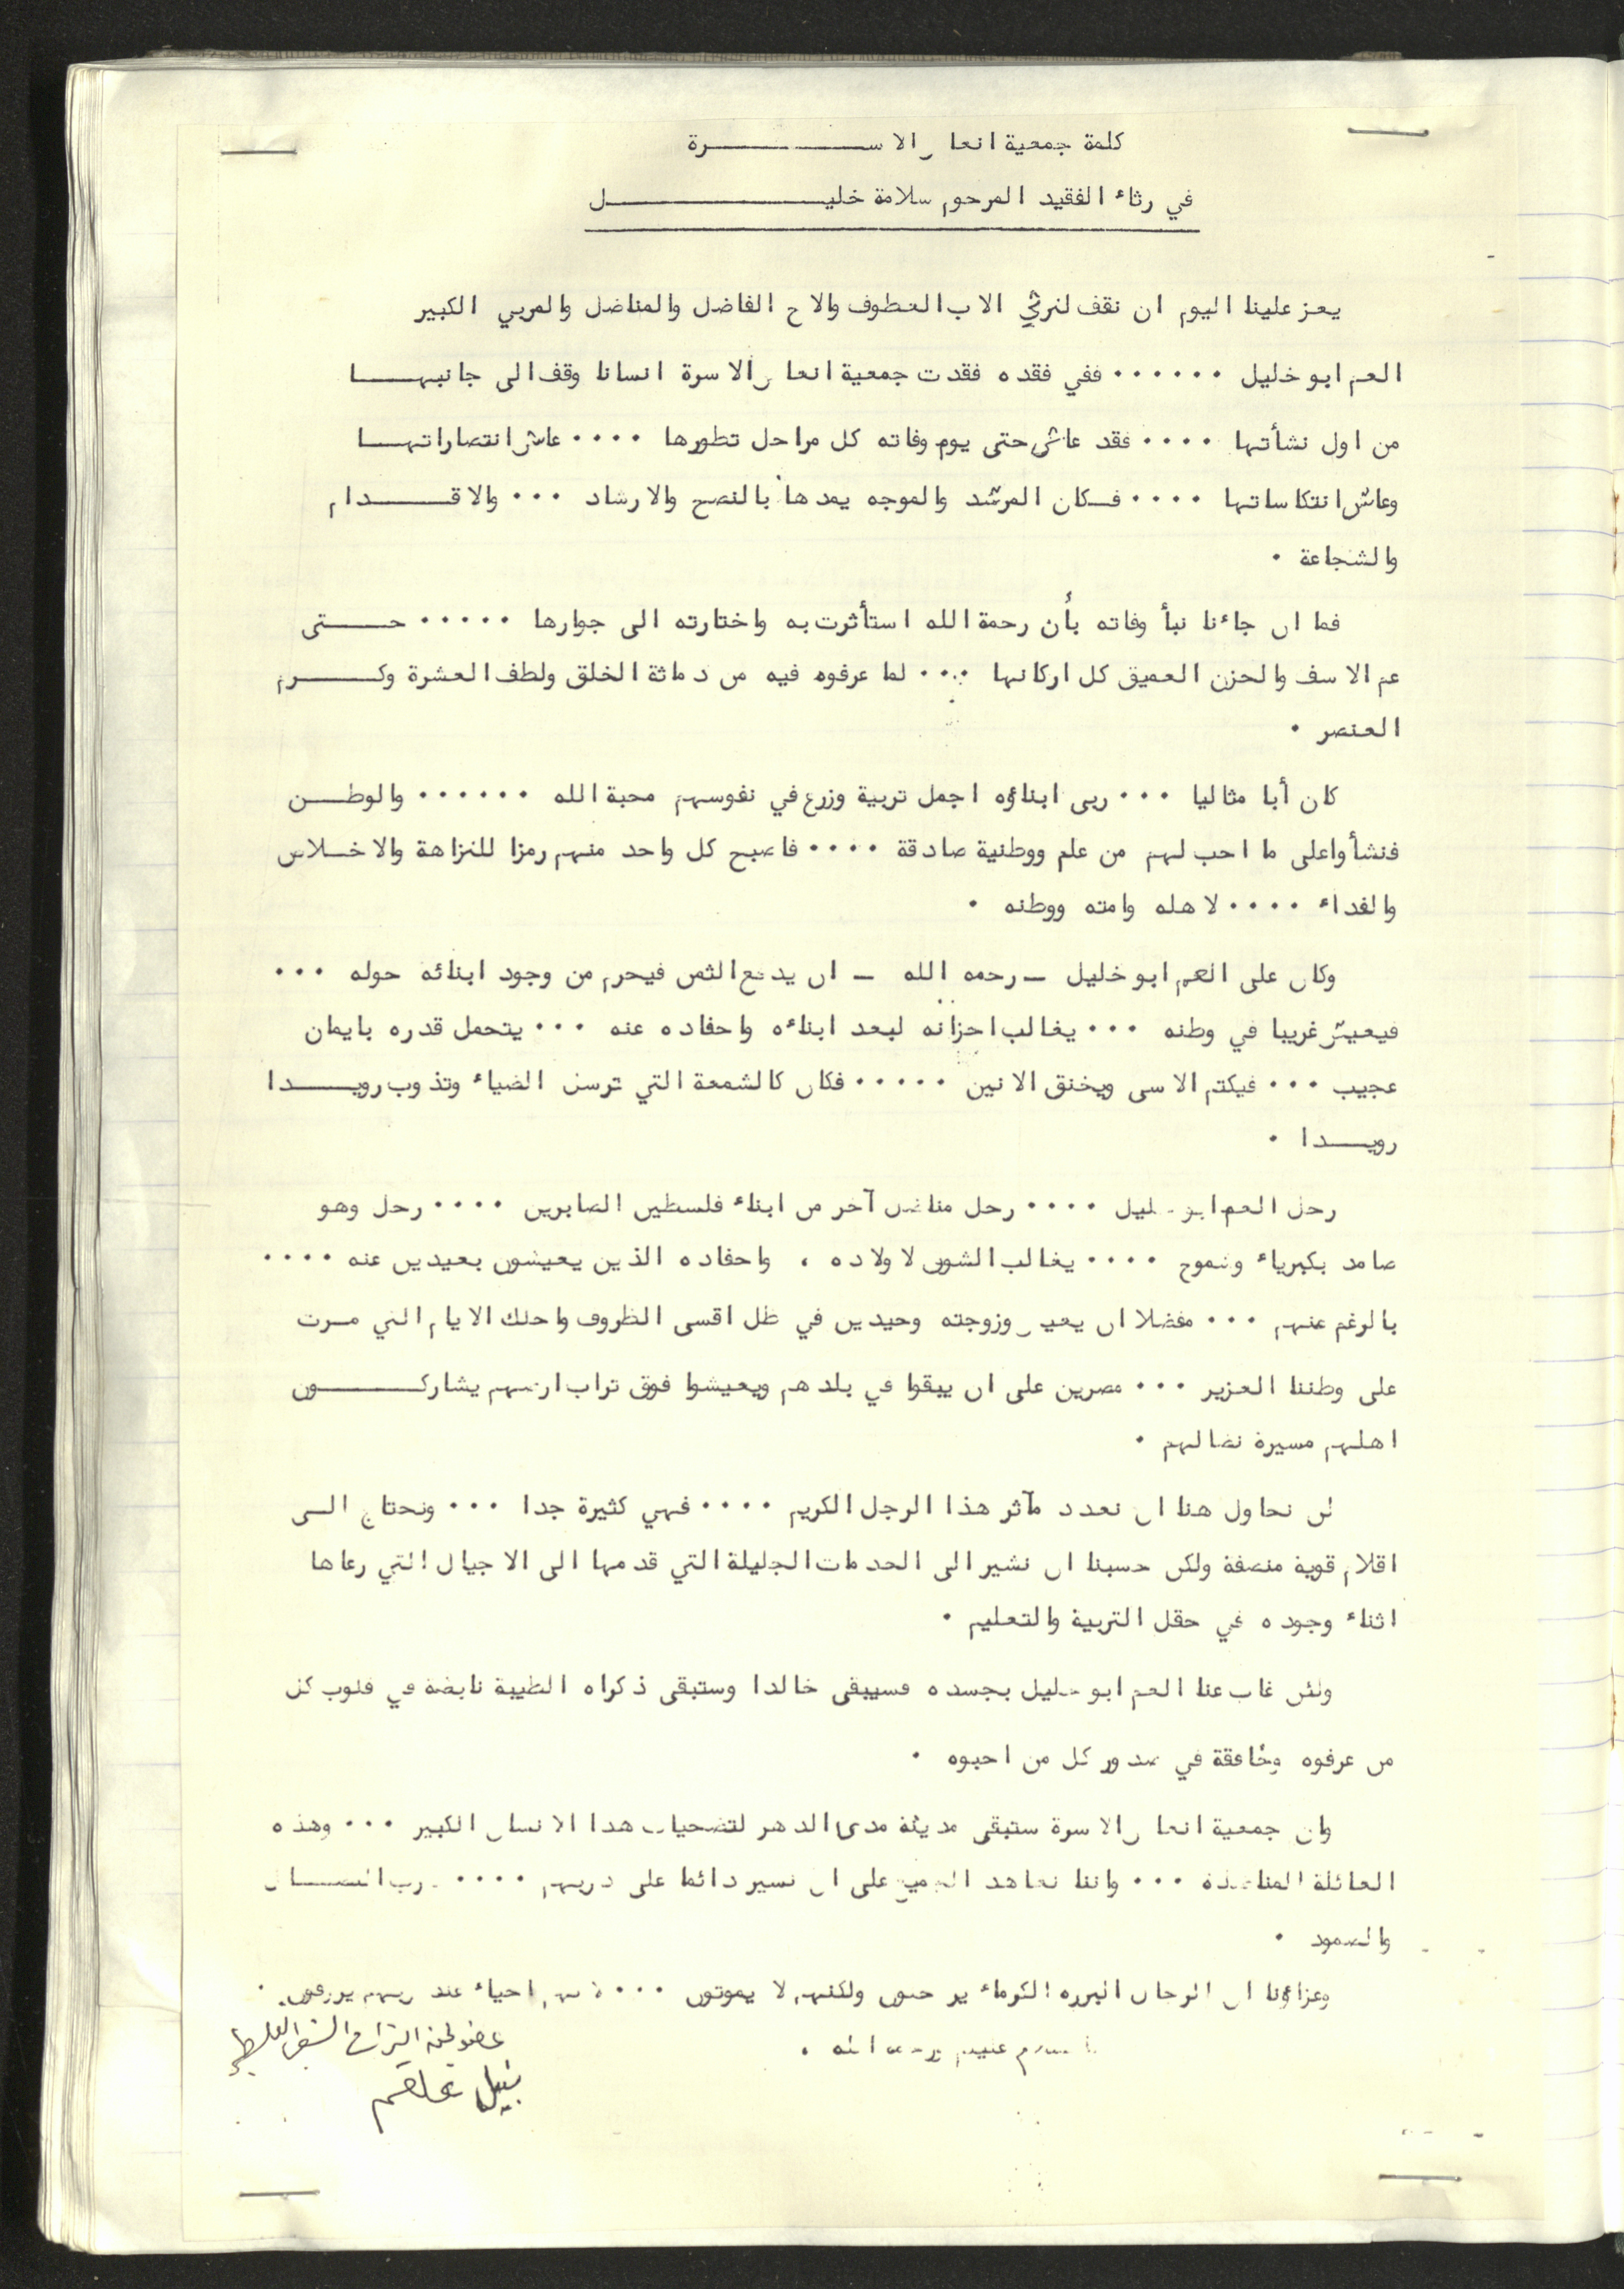 كلمة جمعية انعاش الاســــــــرة
في رثاء الفقيد المرحوم سلامة خليــــــــل
يعز علينا اليوم ان نقف لنرثي الاب العطوف والاخ الفاضل والمناضل والمربي الكبير
العم ابو خليل ...... ففي فقده فقدت جمعية انعاش الاسرة انسانا وقف الى جانبهــــا
من اول نشأتها .... فقد عاش حتى يوم وفاته كل مراحل تطورها .... عاش انتصاراتهــــا
وعاش انتكاساتها .... فــكان المرشد والموجه يمدها بالنصح والارشاد ... والاقــــدام
والشجاعة .
فما ان جاءنا نبأ وفاته بأن رحمة الله استأثرت به واختارته الى جوارها ..... حــــتى
عم الاسف والحزن العميق كل اركانها .... لما عرفوه فيه من دماثة الخلق ولطف العشرة وكــــرم
العنصر .
كان أبا مثاليا ... ربى ابناؤه اجمل تربية وزرع في نفوسهم محبة الله ...... والوطــــن
فنشأوا على ما احب لهم من علم ووطنية صادقة .... فاصبح كل واحد منهم رمزا للنزاهة والاخــلاص
والفداء .... لاهله وامته ووطنه .
وكان على العم ابو خليل ــ رحمه الله ــ ان يدفع الثمن فيحرم من وجود ابنائه حوله ...
فيعيش غريبا في وطنه ... يغالب احزانه لبعد ابناءه واحفاده عنه ... يتحمل قدره بايمان
عجيب ... فيكتم الاسى ويخنق الانين ..... فكان كالشمعة التي ترسل الضياء وتذوب رويــــدا
رويــــدا .
رحل العم ابو خليل .... رحل مناضل آخر من ابناء فلسطين الصابرين .... رحل وهو
صامد بكبرياء وشموخ .... يغالب الشوق لاولاده ، واحفاده الذين يعيشون بعيدين عنه ....
بالرغم عنهم ... مفضلا ان يعيش وزوجته وحيدين في ظل اقسى الظروف واحلك الايام التي مــرت
على وطننا العزيز ... مصرين على ان يبقوا في بلدهم ويعيشوا فوق تراب ارضهم يشاركــــون
اهلهم مسيرة نضالهم .
لن نحاول هنا ان نعدد مآثر هذا الرجل الكريم .... فهي كثيرة جدا ... ونحتاج الــى
اقلام قوية منصفة ولكن حسبنا ان نشير الى الخدمات الجليلة التي قدمها الى الاجيال التي رعاها
اثناء وجوده في حقل التربية والتعليم .
ولئن غاب عنا العم ابو خليل بجسده فسيبقى خالدا وستبقى ذكراه الطيبة نابضة في قلوب كل
من عرفوه وخافقة في صدور كل من احبوه .
وان جمعية انعاش الاسرة ستبقى مدينة مدى الدهر لتضحيات هذا الانسان الكبير ... وهذه
العائلة المناضلة ... واننا نعاهد الجميع على ان نسير دائما على دربهم .... درب النضــــال
والصمود .
وعزاؤنا ان الرجال البرره الكرماء يرحلون ولكنهم لا يموتون ... فهم احياء عند ربهم يرزقون .
والسلام عليكم ورحمة الله .
عضو لجنة التراث الشعبي الفلسطيني
نبيل علقم